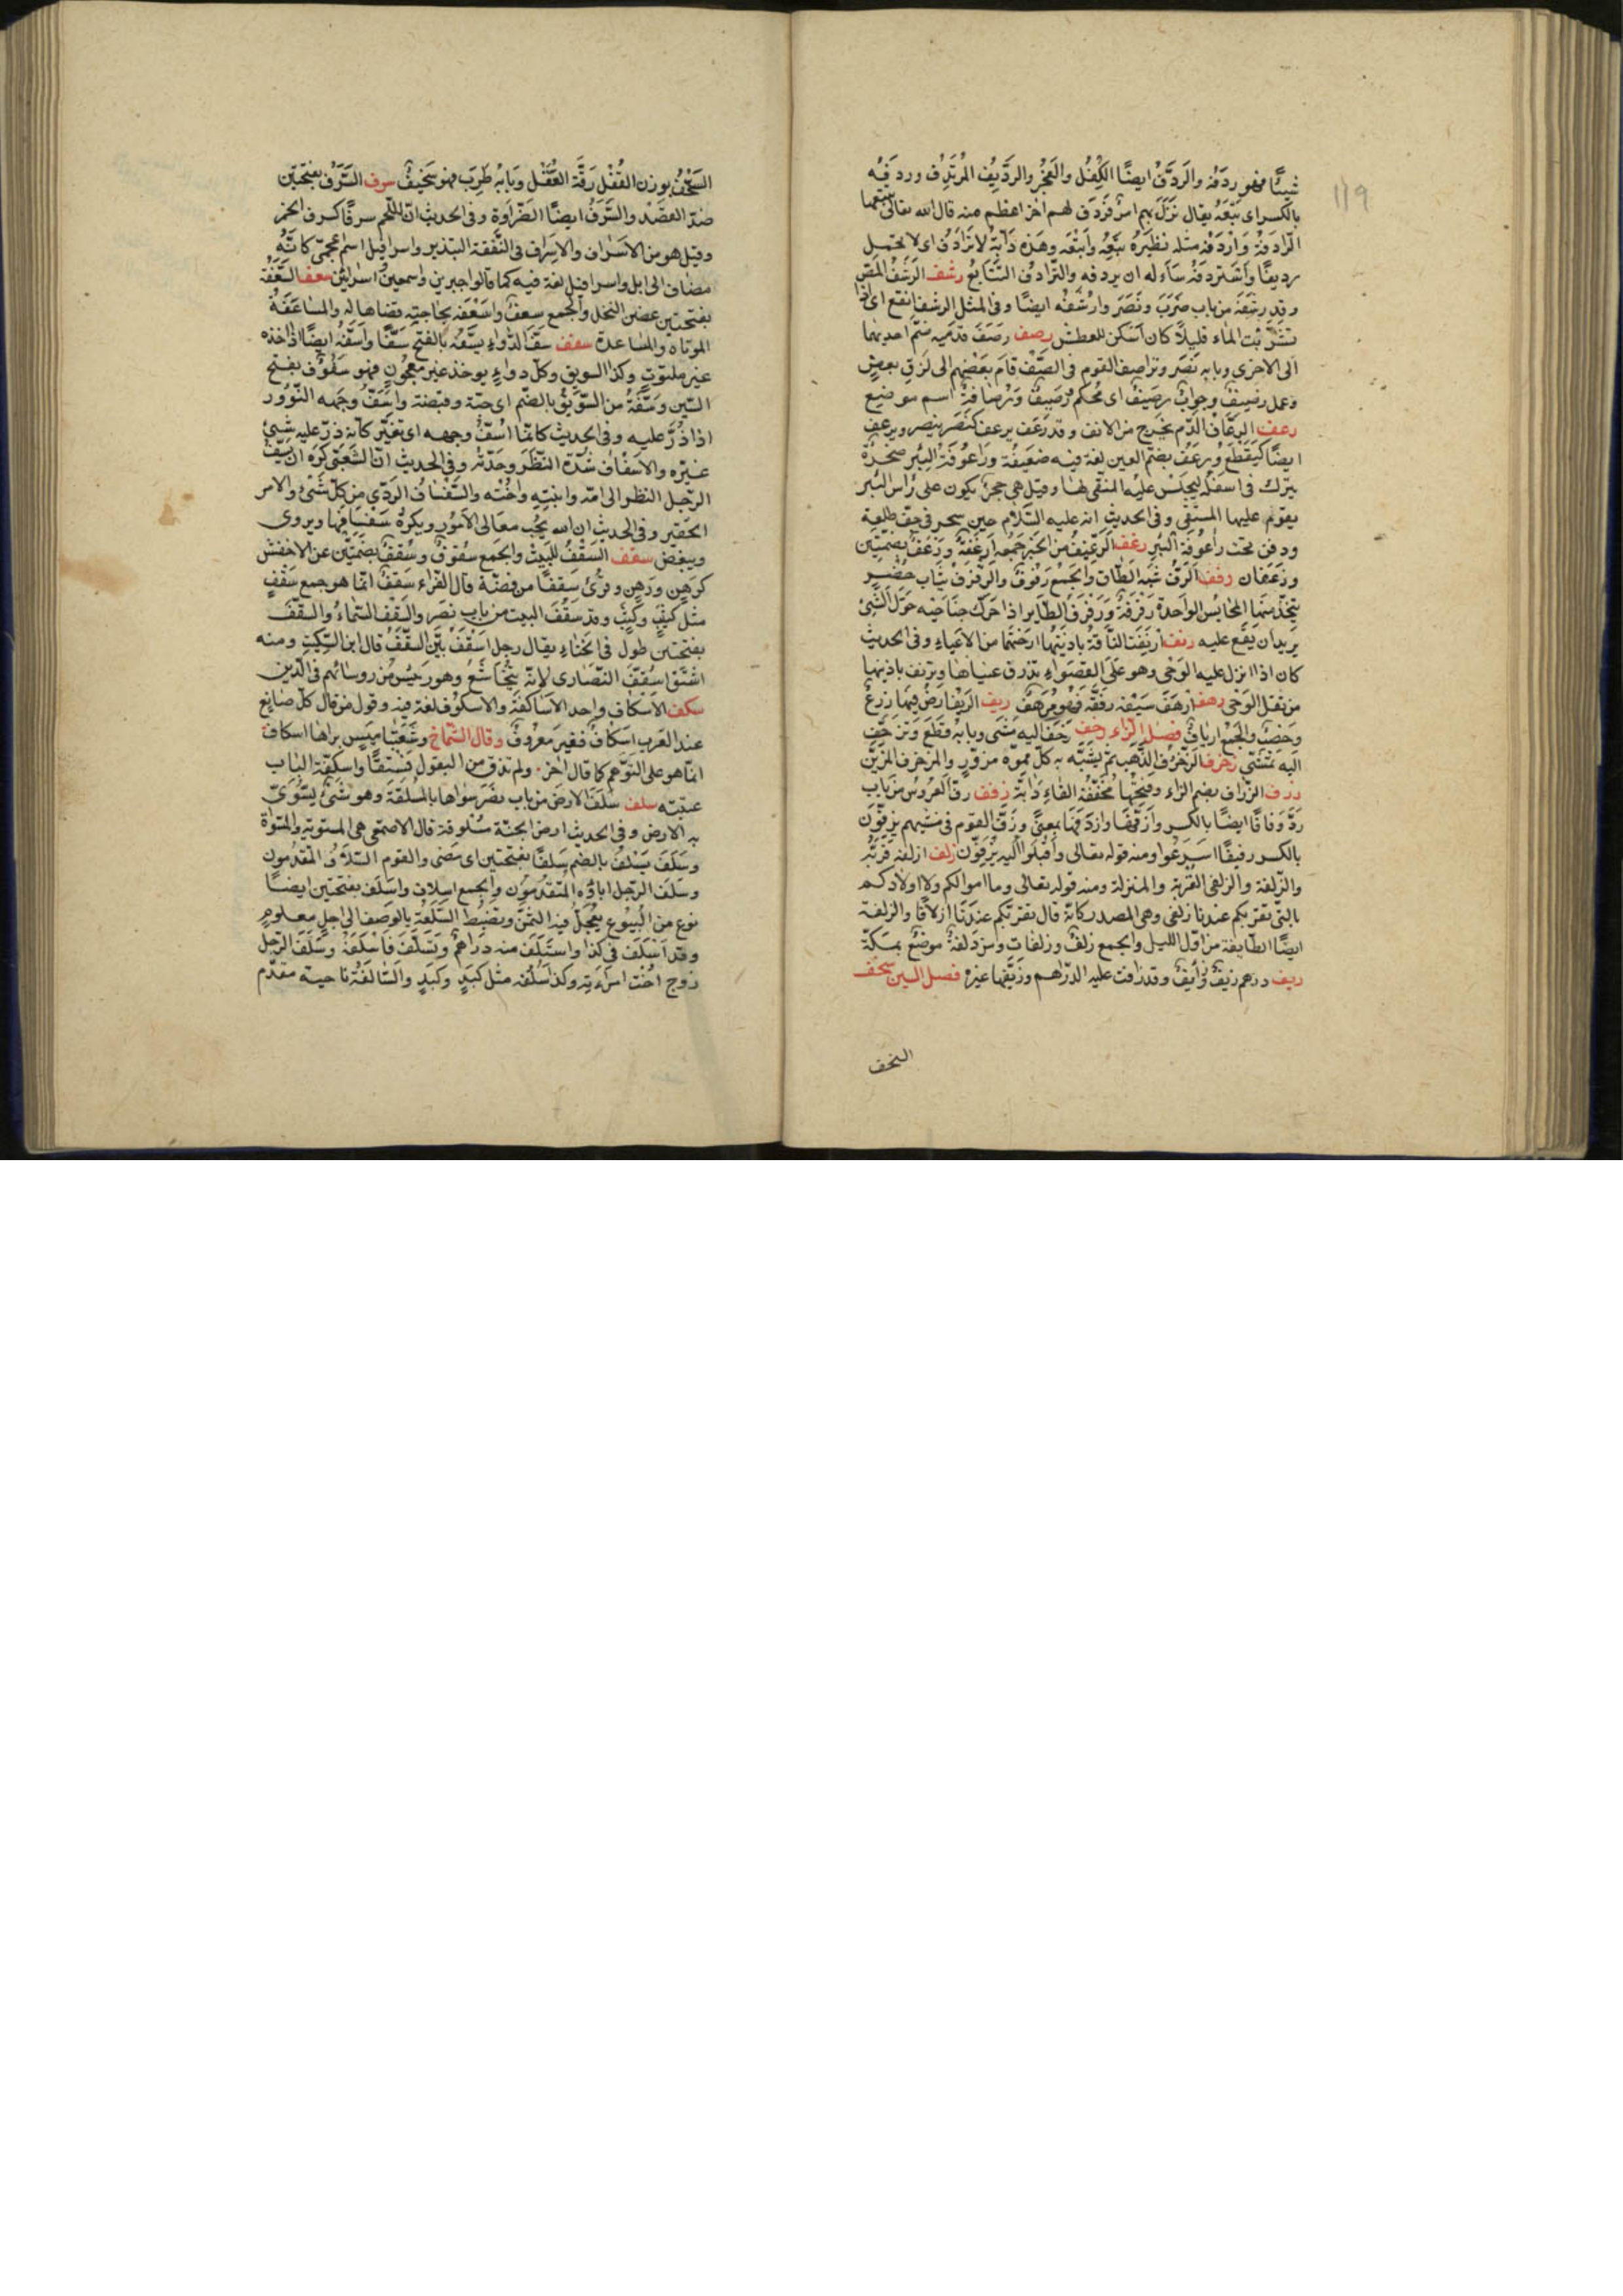 ١١٩
شيئا فهو ردفه والردف ايضا الكفل والعجز والرديف المرتدف وردفه
بالكسر اى تبعه يقال نزل بهم امر فردف لهم اخر اعظم منه قال الله تعالى تتبعها
الرادفة واردفه مثله نظيره تبعه واتبعه وهذه دابة لا ترادف اى لا تحتمل
رديفا واستردفه سأله ان يردفه والترادف التتابع رشف الرشف المص
وقد رشفه من باب ضرب ونصر وارتشفه ايضا وفى المثل الرشف انقع اى اذا
تشربت الماء قليلا كان اسكن للعطش رصف رصف قدميه ضم احديهما
الى الاخرى وبابه نصر وتراصف القوم فى الصف قام بعضهم الى لزق بعض
وعمل رصيف وجواب رصيف اى محكم رصيف ورصافة اسم موضع
رعف الرعاف الدم يخرج من الانف وقد رعف يرعف كنصر ينصر ويرعف
ايضا كيقطع ورعف بضم العين لغة فيه ضعيفة وراعوفة البئر صخرة
تترك فى اسفله ليجلس عليه المنقى لها وقيل هى حجر يكون على رأس البئر
يقوم عليها المستقى وفى الحديث انه عليه السلام حين سحر فى جف طلعة
ودفن تحت راعوفة البئر رغف الرغيف من الخبز جمعه ارغفة ورغف بضمتين
ورغفان رفف الرف شبه الطاق والجمع رفوف والرفرف ثياب خضر
يتخذ منها المحابس الواحدة رفرفة ورفرف الطاير اذا حرك جناحيه حول الشئ
يريد ان يقع عليه رنف ارنفت الناقة باذنيها ارختهما من الاعياء وفى الحديث
كان اذا انزل عليه الوحى وهو على القصواء تذرف عيناها وترنف باذنيها
من ثقل الوحى رهف ارهف سيفه رققه فهو مرهف ريف الريف ارض فيها زرع
وخصب والجمع ارياف فصل الزاء زحف زحف اليه مشى وبابه قطع وتزحف
اليه تمشى زخرف الزخرف الذهب ثم يشبه به كل مموه مزور والمزخرف المزين
زرف الزراف بضم الزاء وفتحها مخففة الفاء دابة زفف زف العروس من باب
رد وزفافا ايضا بالكسر وازفها وازدفها بمعنى وزف القوم فى مشيهم يزفون
بالكسر زفيفا اسرعوا ومنه قوله تعالى واقبلوا اليه يزفون زلف ازلفه قربه
والزلفة والزلفى القربة والمنزلة ومنه قوله تعالى وما اموالكم ولا اولادكم
بالتى تقربكم عندنا زلفى وهى المصدر كانه قال تقربكم عندنا ازلافا والزلفة
ايضا الطايفة من اول الليل والجمع زلف وزلفات ومزدلفة موضع بمكة
زيف درهم زيف وزايف وقد زافت عليه الدراهم وزيفها غيره فصل السين سخف
السخف
السخف بوزن القفل رقة العقل وبابه طرب فهو سخيف سرف السرف بفتحتين
ضد القصد والسرف ايضا الضراوة وفى الحديث ان للحم سرفا كسرف الخمر
وقيل هو من الاسراف والاسراف فى النفقة التبذير واسرافيل اسم عجمى كانه
مضاف الى ايل واسرافين لغة فيه كما قالوا جبرين واسمعين واسرائين سعف السعفة
بفتحتين غصن النخل والجمع سعف واسعفه بحاجته قضاها له والمساعفة
المواتاة والمساعدة سفف سف الدواء يسفه بالفتح سفا واسفه ايضا اذا اخذه
غير ملتوت وكذا السويق وكل دواء يوخذ غير معجون فهو سفوف بفتح
السين وسفة من السويق بالضم اى حبة وقبضة واسف وجهه النؤور
اذا ذر عليه وفى الحديث كانما اسف وجهه اى تغير كانه ذر عليه شئ
غيره والاسفاف شدة النظر وحدته وفى الحديث ان الشعبى كره ان يسف
الرجل النظر الى امه وابنته واخته والسفساف الردى من كل شئ والامر
الحقير وفى الحديث ان الله يحب معالى الامور ويكره سفسافها ويروى
ويبغض سقف السقف للبيت والجمع سقوف وسقف بضمتين عن الاخفش
كرهن ورهن وقرئ سقفا من فضة قال الفراء سقف انما هو جمع سقيف
مثل كثيب وكثب وقد سقف البيت من باب نصر والسقف السماء والسقف
بفتحتين طول فى انحناء يقال رجل اسقف بين السقف قال ابن السكيت ومنه
اشتق اسقف النصارى لانه يتخاشع وهو رئيس من روسائهم فى الدين
سكف الاسكاف واحد الاساكفة والاسكوف لغة فيه وقول من قال كل صانع
عند العرب اسكاف فغير معروف وقال الشماخ وشعبتا ميس براها اسكاف
انما هو على التوهم كما قال اخر ولم تذق من البقول فستقا واسكفة الباب
عتبته سلف سلف الارض من باب نصر سواها بالمسلفة وهو شئ يسوى
به الارض وفى الحديث ارض الجنة مسلوفة قال الاصمعى هى المستوية والمسواة
وسلف يسلف بالضم سلفا بفتحتين اى مضى والقوم السلاف المتقدمون
وسلف الرجل اباؤه المتقدمون والجمع اسلاف والسلف بفتحتين ايضا
نوع من البيوع يعجل فيه الثمن وتضبط السلعة بالوصف الى اجل معلوم
وقد اسلف فى كذا واستسلف منه دراهم وتسلف فاسلفه وسلف الرجل
زوج اخت امرأته وكذا سلفه مثل كبد وكبد والسالفة ناحيته مقدم